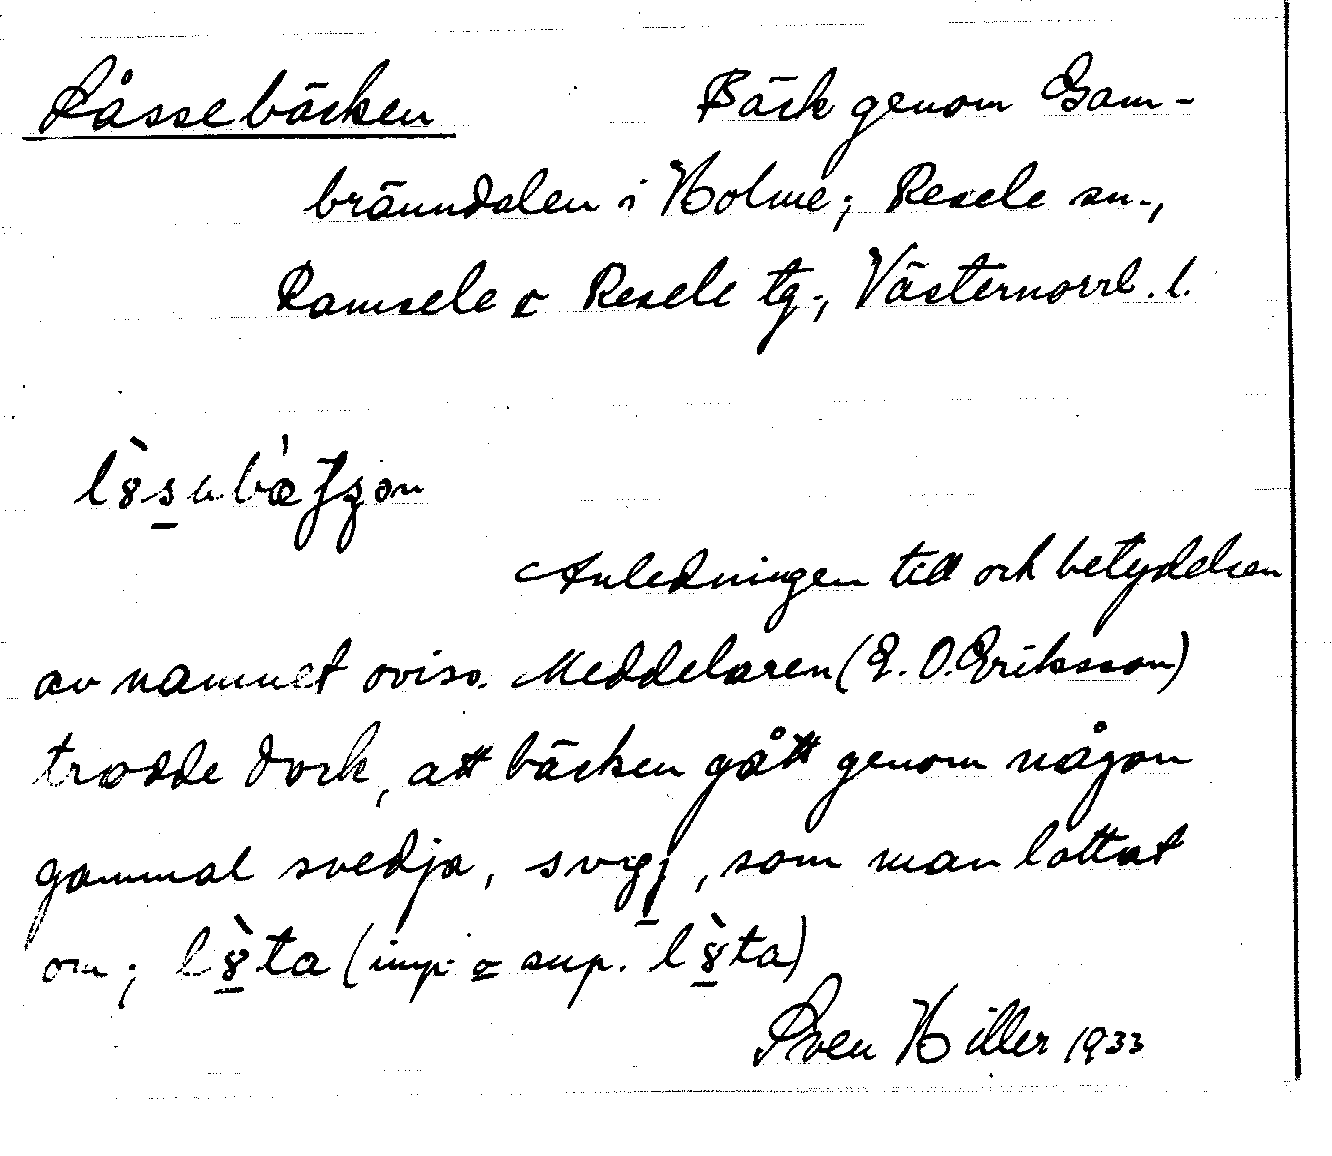 Låssebäcken Bäck genom Gam-
bränndalen i Holme; Resele sn.,
Ramsele o Resele tg., Västernorrl. l.
Anledningen till och betydelsen
av namnet oviss. Meddelaren (E. O. Eriksson)
trodde dock, att bäcken gått genom någon
gammal svedja, som man lottat
om; (imp. = sup.
Sven Hiller 1933